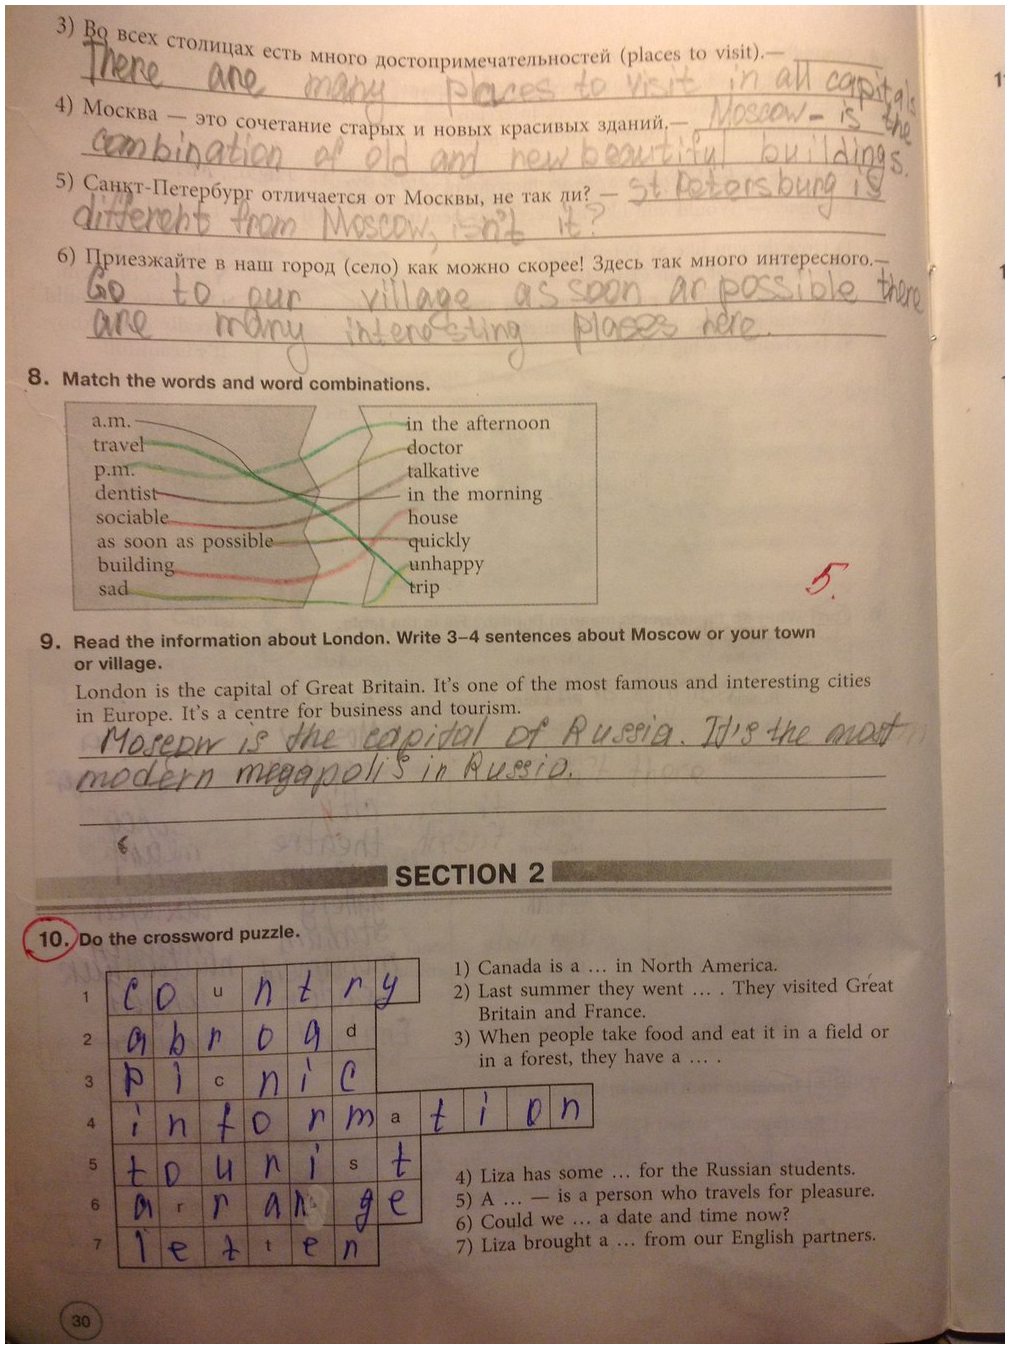 3) Во всех столицах есть много достопримечательностей (places to visit).—
There are many places to visit in all capitals
4) Москва — это сочетание старых и новых красивых зданий.— Moscow - is the
combination of old and new beautiful buildings.
5) Санкт-Петербург отличается от Москвы, не так ли? — St Petersburg is
different from Moscow, isn't it?
6) Приезжайте в наш город (село) как можно скорее! Здесь так много интересного.—
Go to our village as soon as possible there
are many interesting places here.
8. Match the words and word combinations.
a.m.
travel
p.m.
dentist
sociable
as soon as possible
building
sad
in the afternoon
doctor
talkative
in the morning
house
quickly
unhappy
trip
5.
9. Read the information about London. Write 3–4 sentences about Moscow or your town
or village.
London is the capital of Great Britain. It's one of the most famous and interesting cities
in Europe. It's a centre for business and tourism.
Moscow is the capital of Russia. It's the most
modern megapolis in Russia.
SECTION 2
10. Do the crossword puzzle.
1 country
2 abroad
3 picnic
4 information
5 tounist
6 arrange
7 letten
1) Canada is a ... in North America.
2) Last summer they went ... . They visited Great
Britain and France.
3) When people take food and eat it in a field or
in a forest, they have a ... .
4) Liza has some ... for the Russian students.
5) A ... — is a person who travels for pleasure.
6) Could we ... a date and time now?
7) Liza brought a ... from our English partners.
30